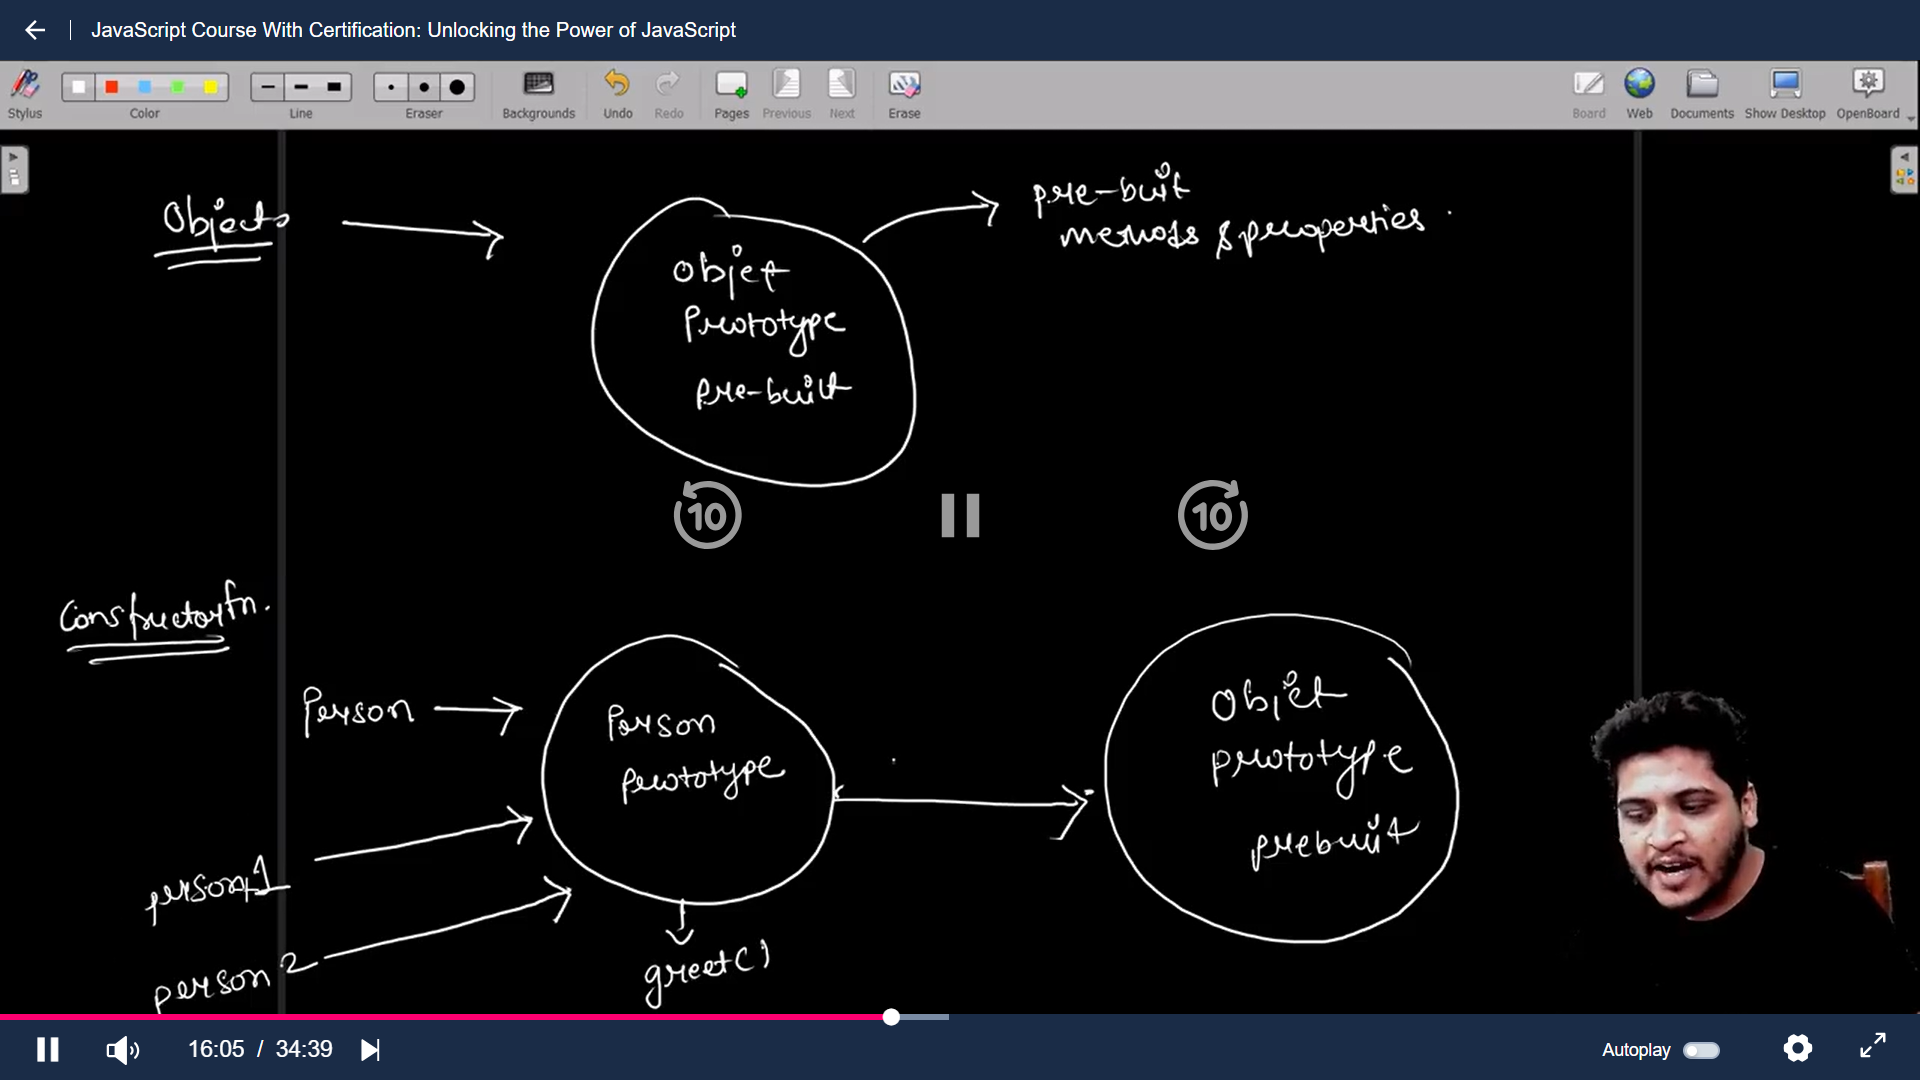 JavaScript Course With Certification: Unlocking the Power of JavaScript
Stylus
Color
Line
Eraser
Backgrounds
Undo
Redo
Pages
Previous
Next
Erase
Board
Web
Documents
Show Desktop
OpenBoard
Objects
Objet
Prototype
Pre-built
pre-buit
methods & properties
10
10
Constructor fn.
Person
Person
Prototype
Objct
prototype
prebuit
person1
person2
greet()
16:05 / 34:39
Autoplay